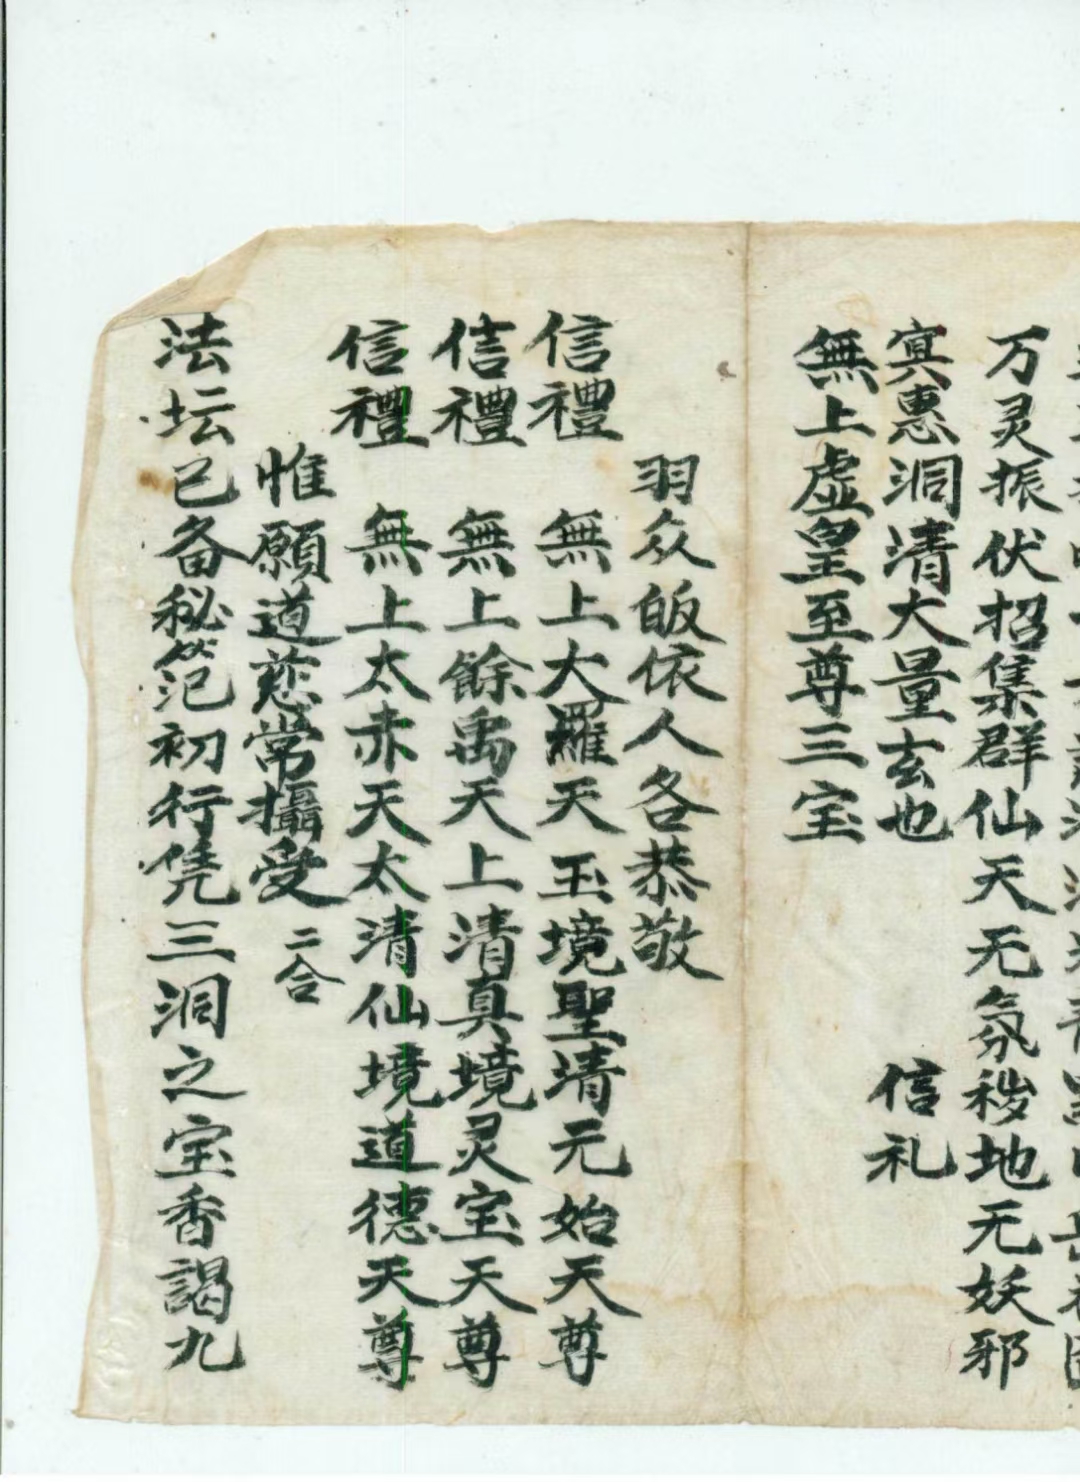 万灵振伏招集群仙天无氛秽地无妖邪
冥惠洞清大量玄也 信礼
無上虚皇至尊三宝
羽众皈依人各恭敬
信禮 無上大羅天玉境聖清元始天尊
信禮 無上餘禹天上清真境灵宝天尊
信禮 無上太赤天太清仙境道德天尊
惟願道慈常攝受 二合
法坛已备秘範初行凭三洞之宝香謁九